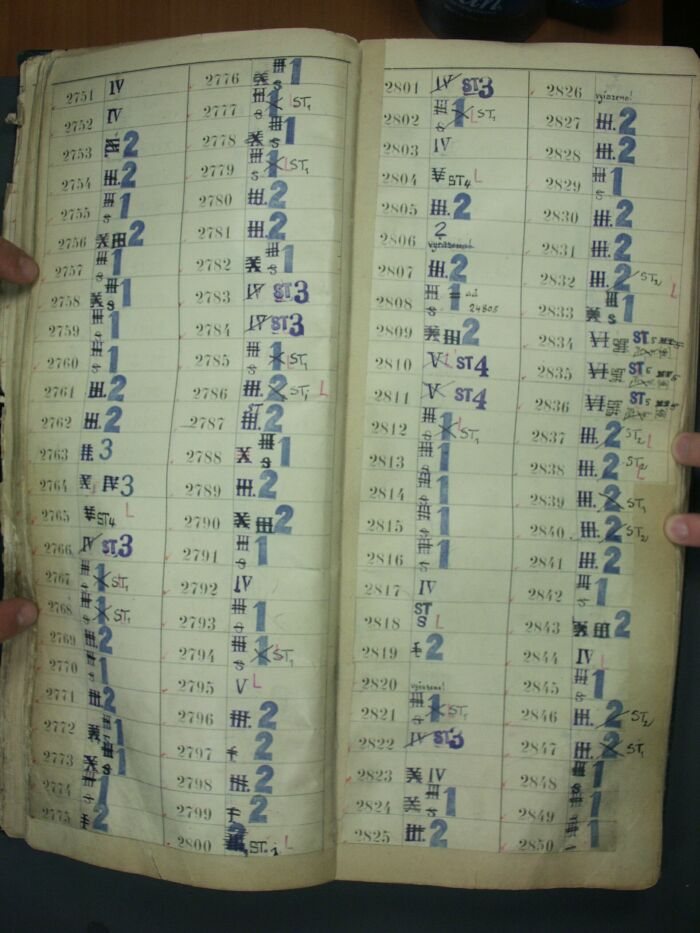 2751 IV
2752 IV
2753 2
2754 III. 2
2755 III S 1
2756 X III 2
2757 III S 1
2758 X III S 1
2759 III S 1
2760 III S 1
2761 III. 2
2762 III. 2
2763 II. 3
2764 X IV 3
2765 V ST4 L
2766 IV ST3
2767 III S 1 L ST1
2768 III S 1 L ST1
2769 III. 2
2770 III S 1
2771 III. 2
2772 X III S 1
2773 X III S 1
2774 III S 1
2775 I 2
2776 X III S 1
2777 III S 1 L ST1
2778 X III S 1
2779 III S 1 L ST1
2780 III. 2
2781 III. 2
2782 X III S 1
2783 IV ST3
2784 IV ST3
2785 III S 1 L ST1
2786 III. 2 ST1 L
2787 ST III. 2
2788 X III S 1
2789 III. 2
2790 X III 2
2791 III S 1
2792 IV
2793 III S 1
2794 III S 1 L ST1
2795 V L
2796 III. 2
2797 I 2
2798 III. 2
2799 I 2
2800 ST1 L
2801 IV ST3
2802 III S 1 L ST1
2803 IV
2804 V ST4 L
2805 III. 2
2806 2
vyřazeno!
2807 III. 2
2808 III S 1
24805
2809 X III 2
2810 V L ST4
2811 V ST4
2812 III S 1 L ST1
2813 III S 1
2814 III S 1
2815 III S 1
2816 III S 1
2817 IV
2818 ST S L
2819 I 2
2820 vyřazeno!
2821 III S 1 L ST1
2822 IV ST3
2823 X IV
2824 X III S 1
2825 III. 2
2826 vyřazeno!
2827 III. 2
2828 III. 2
2829 III S 1
2830 III. 2
2831 III. 2
2832 III. 2 ST2 L
2833 X III S 1
2834 VI ST5
2835 VI ST5
2836 VI ST5
2837 III. 2 ST2 L
2838 III. 2 ST2 L
2839 III. 2 ST1
2840 III. 2 ST2
2841 III. 2
2842 III S 1
2843 X III 2
2844 IV L
2845 III S 1
2846 III. 2 ST2
2847 III. 2 ST1
2848 III S 1
2849 III S 1
2850 III S 1